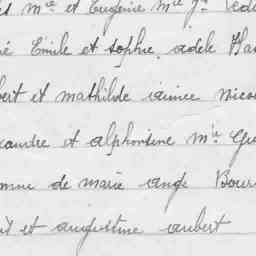 et Eugénie Mie
né Emile et Sophie adèle
bert et mathilde aimée Nico
xandre et alphonsine mie
de marie ange Bour
et augustine aubert